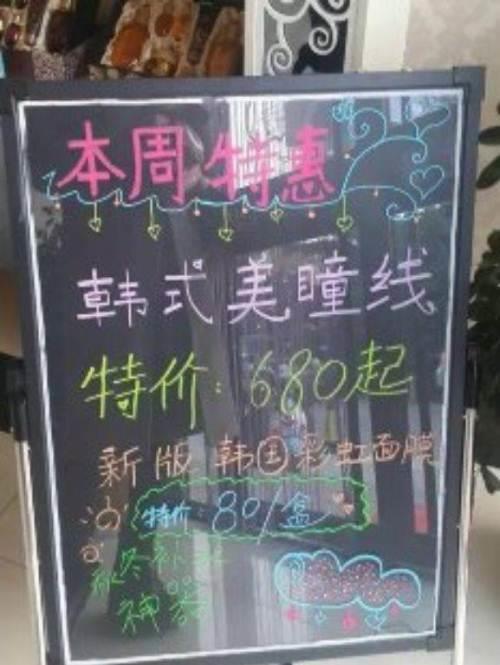 本周特惠
韩式美瞳线
特价:680起
新版韩国彩虹面膜
特价:80/盒
秋冬补水
神器